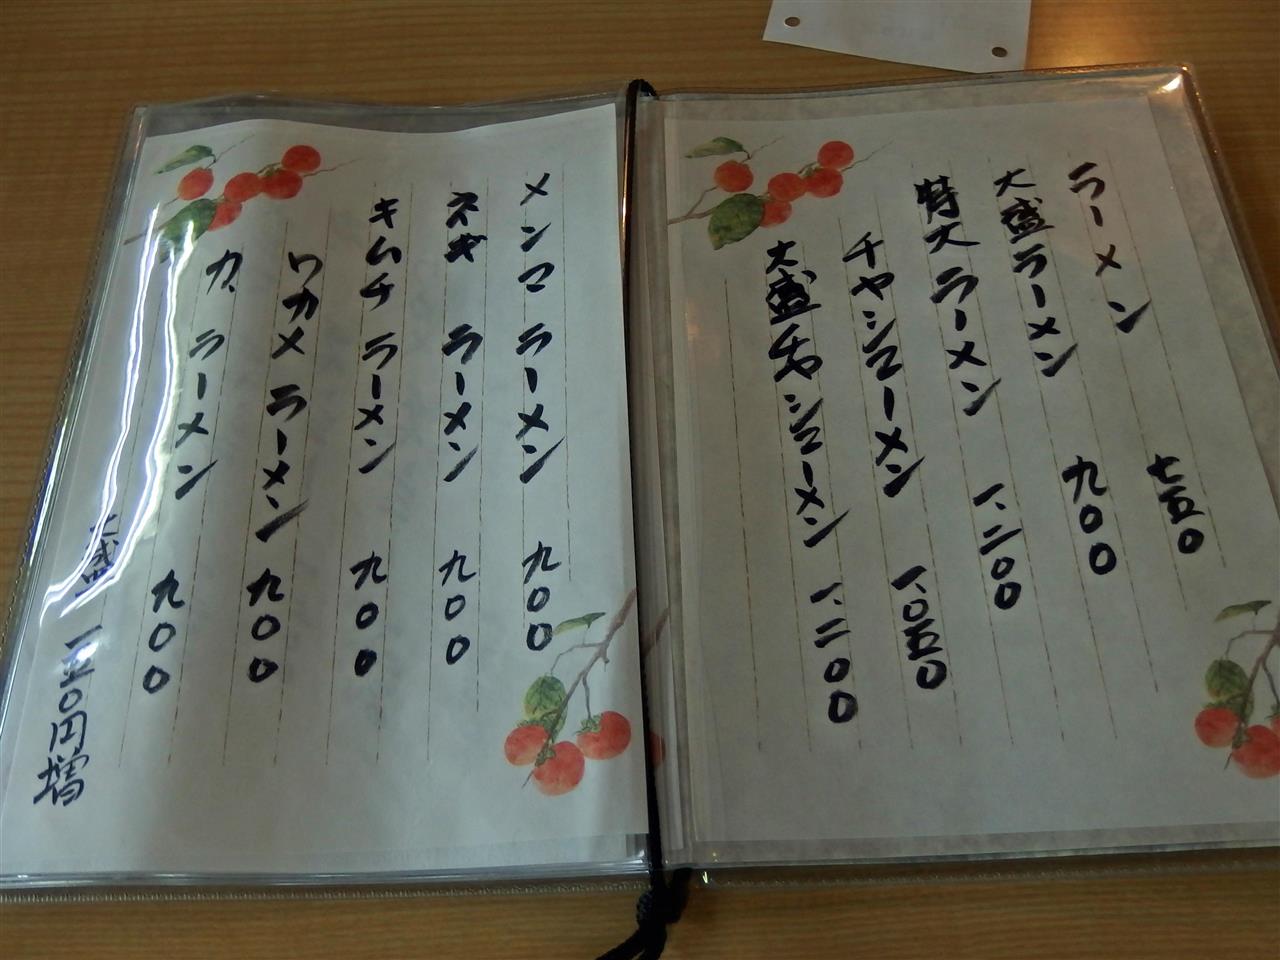 ラーメン 七五〇
大盛ラーメン 九〇〇
特大ラーメン 一、二〇〇
チャシューメン 一、〇五〇
大盛チャシューメン 一、二〇〇
メンマラーメン 九〇〇
ネギラーメン 九〇〇
キムチラーメン 九〇〇
ワカメラーメン 九〇〇
力ラーメン 九〇〇
大盛 一五〇円増